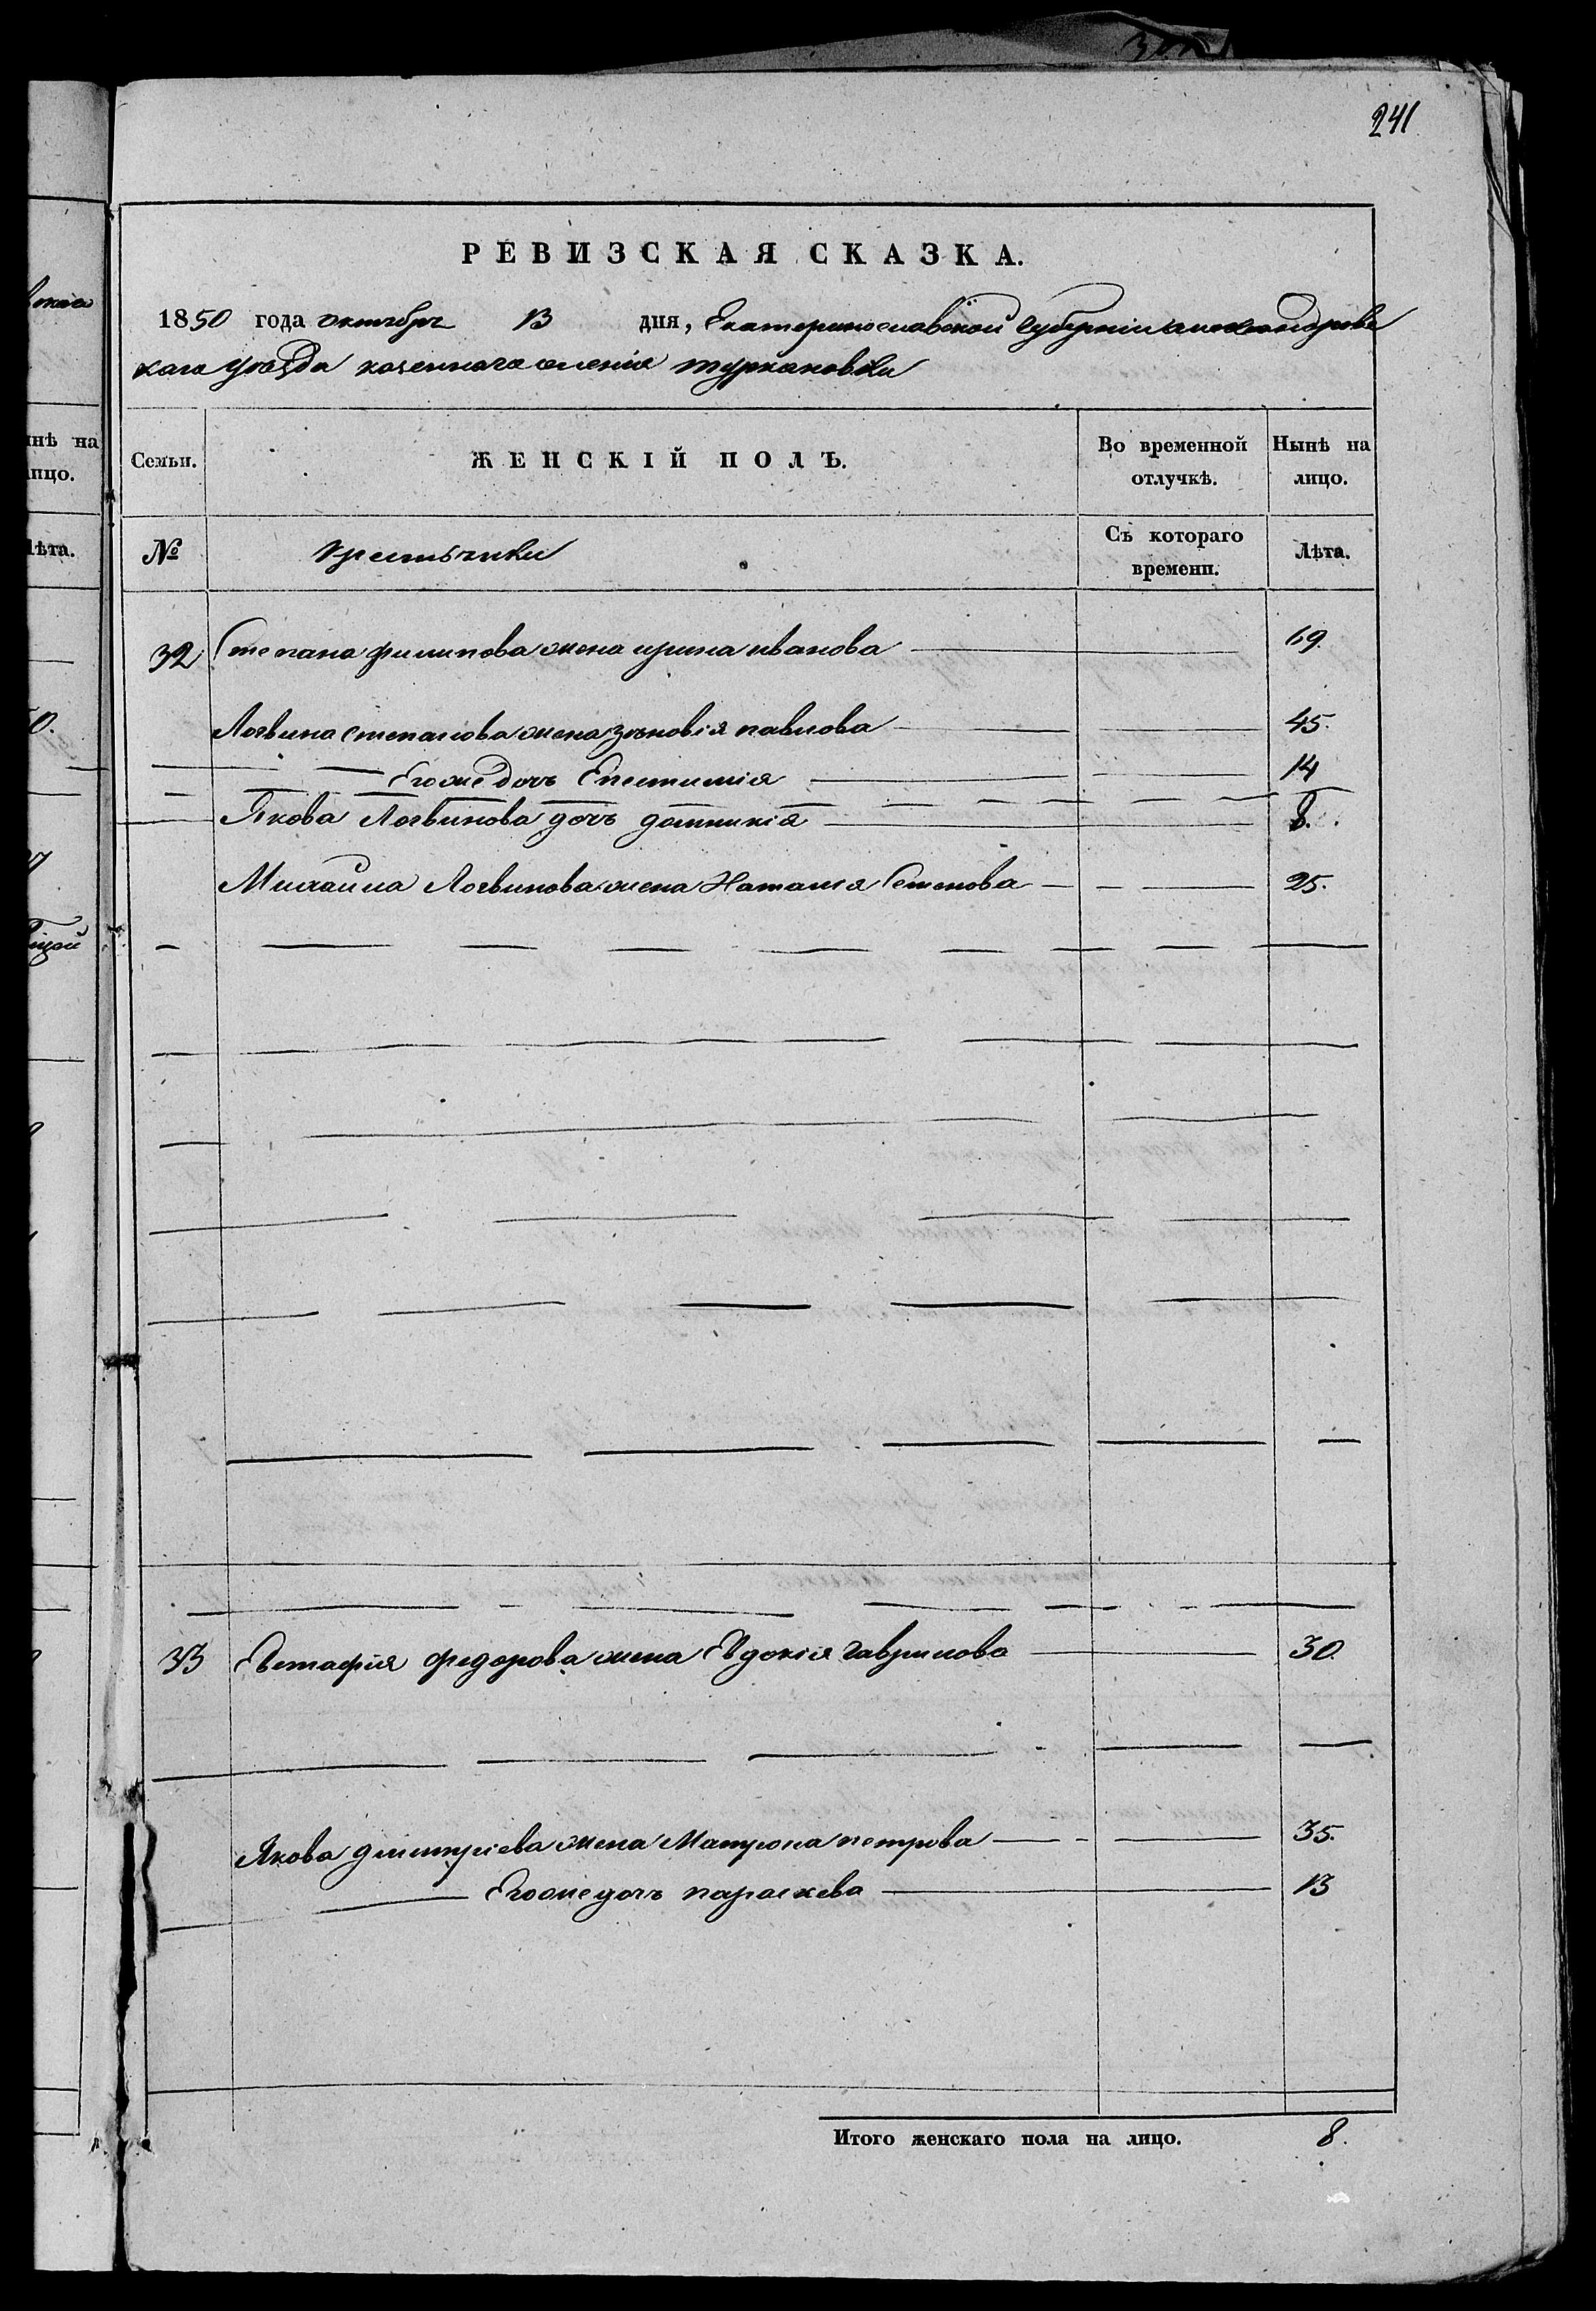 241
РЕВИЗСКАЯ СКАЗКА.
1850 года октября 13 дня, Екатеринославской Губерніи александровс
каго уѣзда казеннаго селенія туркановки
Семьи. ЖЕНСКІЙ ПОЛЪ. Во временной отлучкѣ. Нынѣ на лицо.
№ крестьянки Съ котораго времени. Лѣта.
32 Степана филипова жена ирина иванова 69.
Логвина степанова жена зѣновія павлова 45.
Егоже дочь Епестимія 14
Якова Логвинова дочь домникія 8.
Михайла Логвинова жена Наталія Семенова 25.
33 Евстафія федорова жена Евдокія гаврилова 30.
Якова дмитріева жена Матрона петрова 35.
Егоже дочь параскева 13
Итого женскаго пола на лицо. 8.